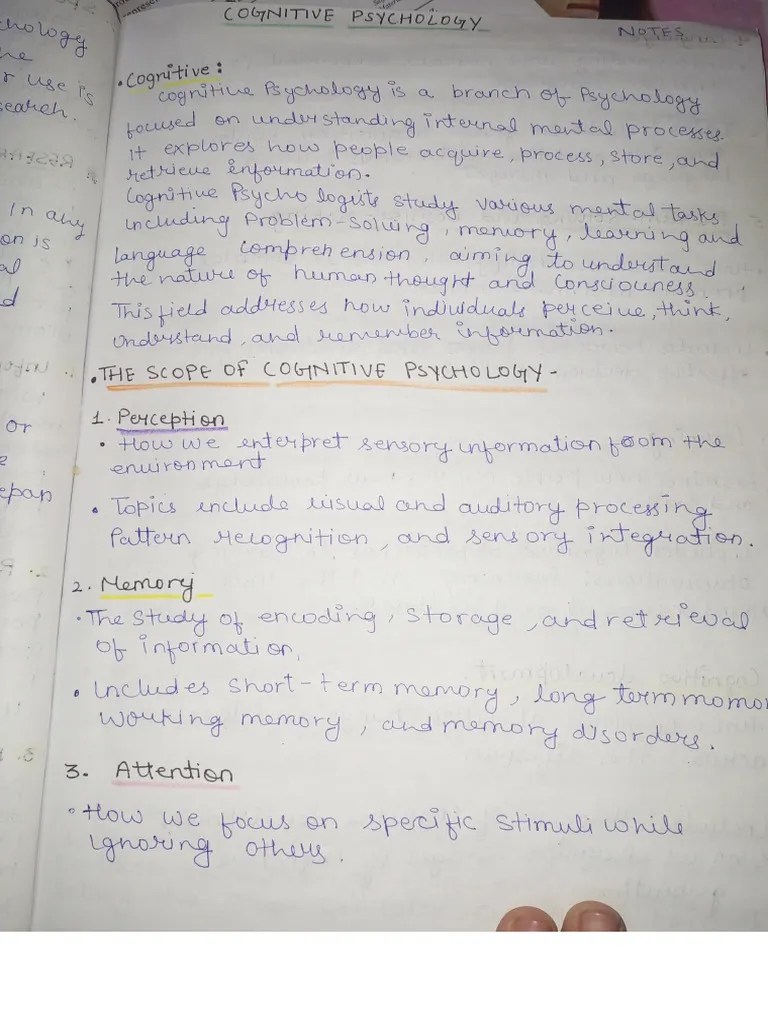 COGNITIVE PSYCHOLOGY
NOTES
• Cognitive:
Cognitive Psychology is a branch of Psychology
focused on understanding internal mental processes.
It explores how people acquire, process, store, and
retrieve information.
Cognitive Psychologists study various mental tasks
including Problem-solving, memory, learning and
language comprehension, aiming to understand
the nature of human thought and consciouness.
This field addresses how individuals perceive, think,
understand, and remember information.
• THE SCOPE OF COGNITIVE PSYCHOLOGY -
1. Perception
• How we interpret sensory information from the
environment
• Topics include visual and auditory processing
Pattern recognition, and sensory integration.
2. Memory
• The study of encoding, storage, and retrieval
of information,
• Includes short-term memory, long term momor
working memory, and memory disorders.
3. Attention
• How we focus on specific stimuli while
ignoring others.
chology
r use is
search.
In any
on is
al
d
or
e
epan